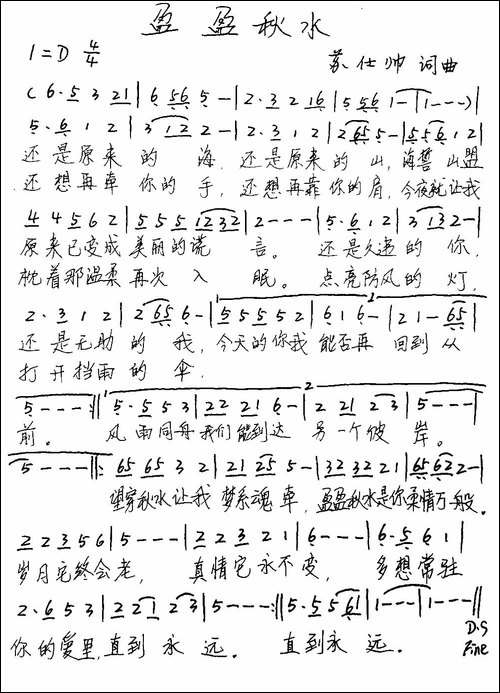 盈盈秋水
1=D 4/4 苏仕帅 词曲
( 6·5 3 21 | 6 56 5 - | 2·3 2 16 | 5 56 1 - | 1 - - - ) |
5·6 1 2 | 3 12 2 - | 2·3 1 2 | 2 65 5 - | 5 5 6 1 2 |
还是原来的海，还是原来的山，海誓山盟
还想再牵你的手，还想再靠你的肩，今夜就让我
4 4 5 6 2 | 5 5 5 1232 | 2 - - - | 5·6 1 2 | 3 13 2 - |
原来已变成美丽的谎言。还是久违的你，
枕着那温柔再次入眠。点亮防风的灯，
2·3 1 2 | 2 65 6 - | 5 5 5 5 2 | 6 1 6 - | 2 1 - 65 |
还是无助的我，今天的你我能否再回到从
打开挡雨的伞．
5 - - - :|| 5·5 5 3 | 22 21 6 - | 2 21 2 3 | 5 - - - |
前。风雨同舟我们能到达另一个彼岸。
5 - - - ||: 65 65 3 2 | 21 25 5 - | 32 32 2 1 | 65 62 2 - |
望穿秋水让我梦系魂牵，盈盈秋水是你柔情万般。
2 2 3 5 6 | 5 - - - | 2 2 3 2 1 | 6 - - - | 6·5 6 1 |
岁月它终会老，真情它永不变，多想常驻
2·6 5 3 | 2 2 1 2 3 | 5 - - - :|| 5·5 5 61 | 1 - - - | 1 - - - ||
你的爱里，直到永远。直到永远。
D.S
Fine